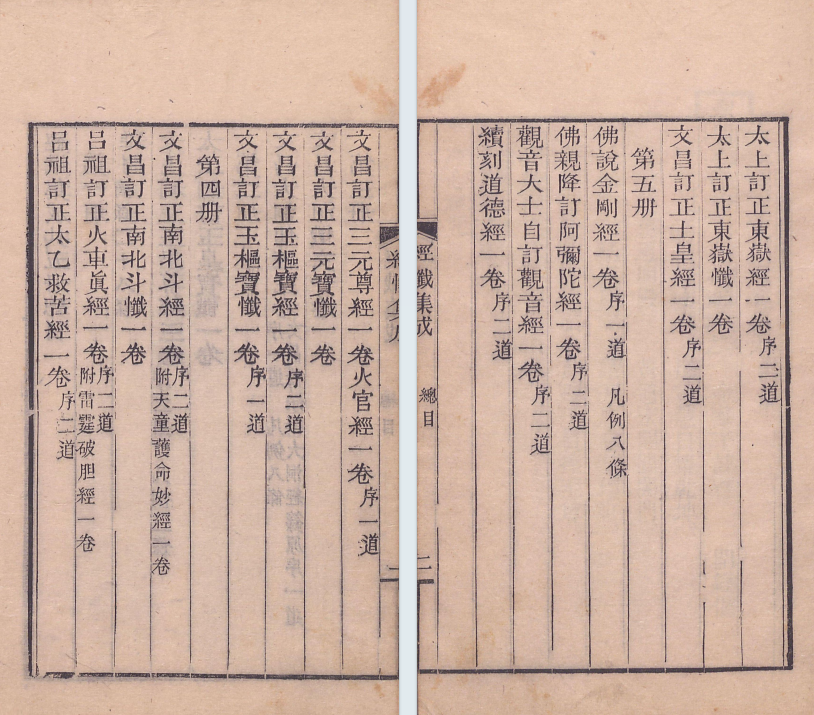 太上訂正東嶽經一卷序二道
太上訂正東嶽懺一卷
文昌訂正土皇經一卷序二道
第五册
佛說金剛經一卷序一道 凡例八條
佛親降訂阿彌陀經一卷序二道
觀音大士自訂觀音經一卷序二道
續刻道德經一卷序二道
經懺集成 總目 二
文昌訂正三元尊經一卷火官經一卷序一道
文昌訂正三元寶懺一卷
文昌訂正玉樞寶經一卷序二道
文昌訂正玉樞寶懺一卷序一道
第四册
文昌訂正南北斗經一卷序二道附天童護命妙經一卷
文昌訂正南北斗懺一卷
呂祖訂正火車眞經一卷序二道附雷霆破胆經一卷
呂祖訂正太乙救苦經一卷序二道